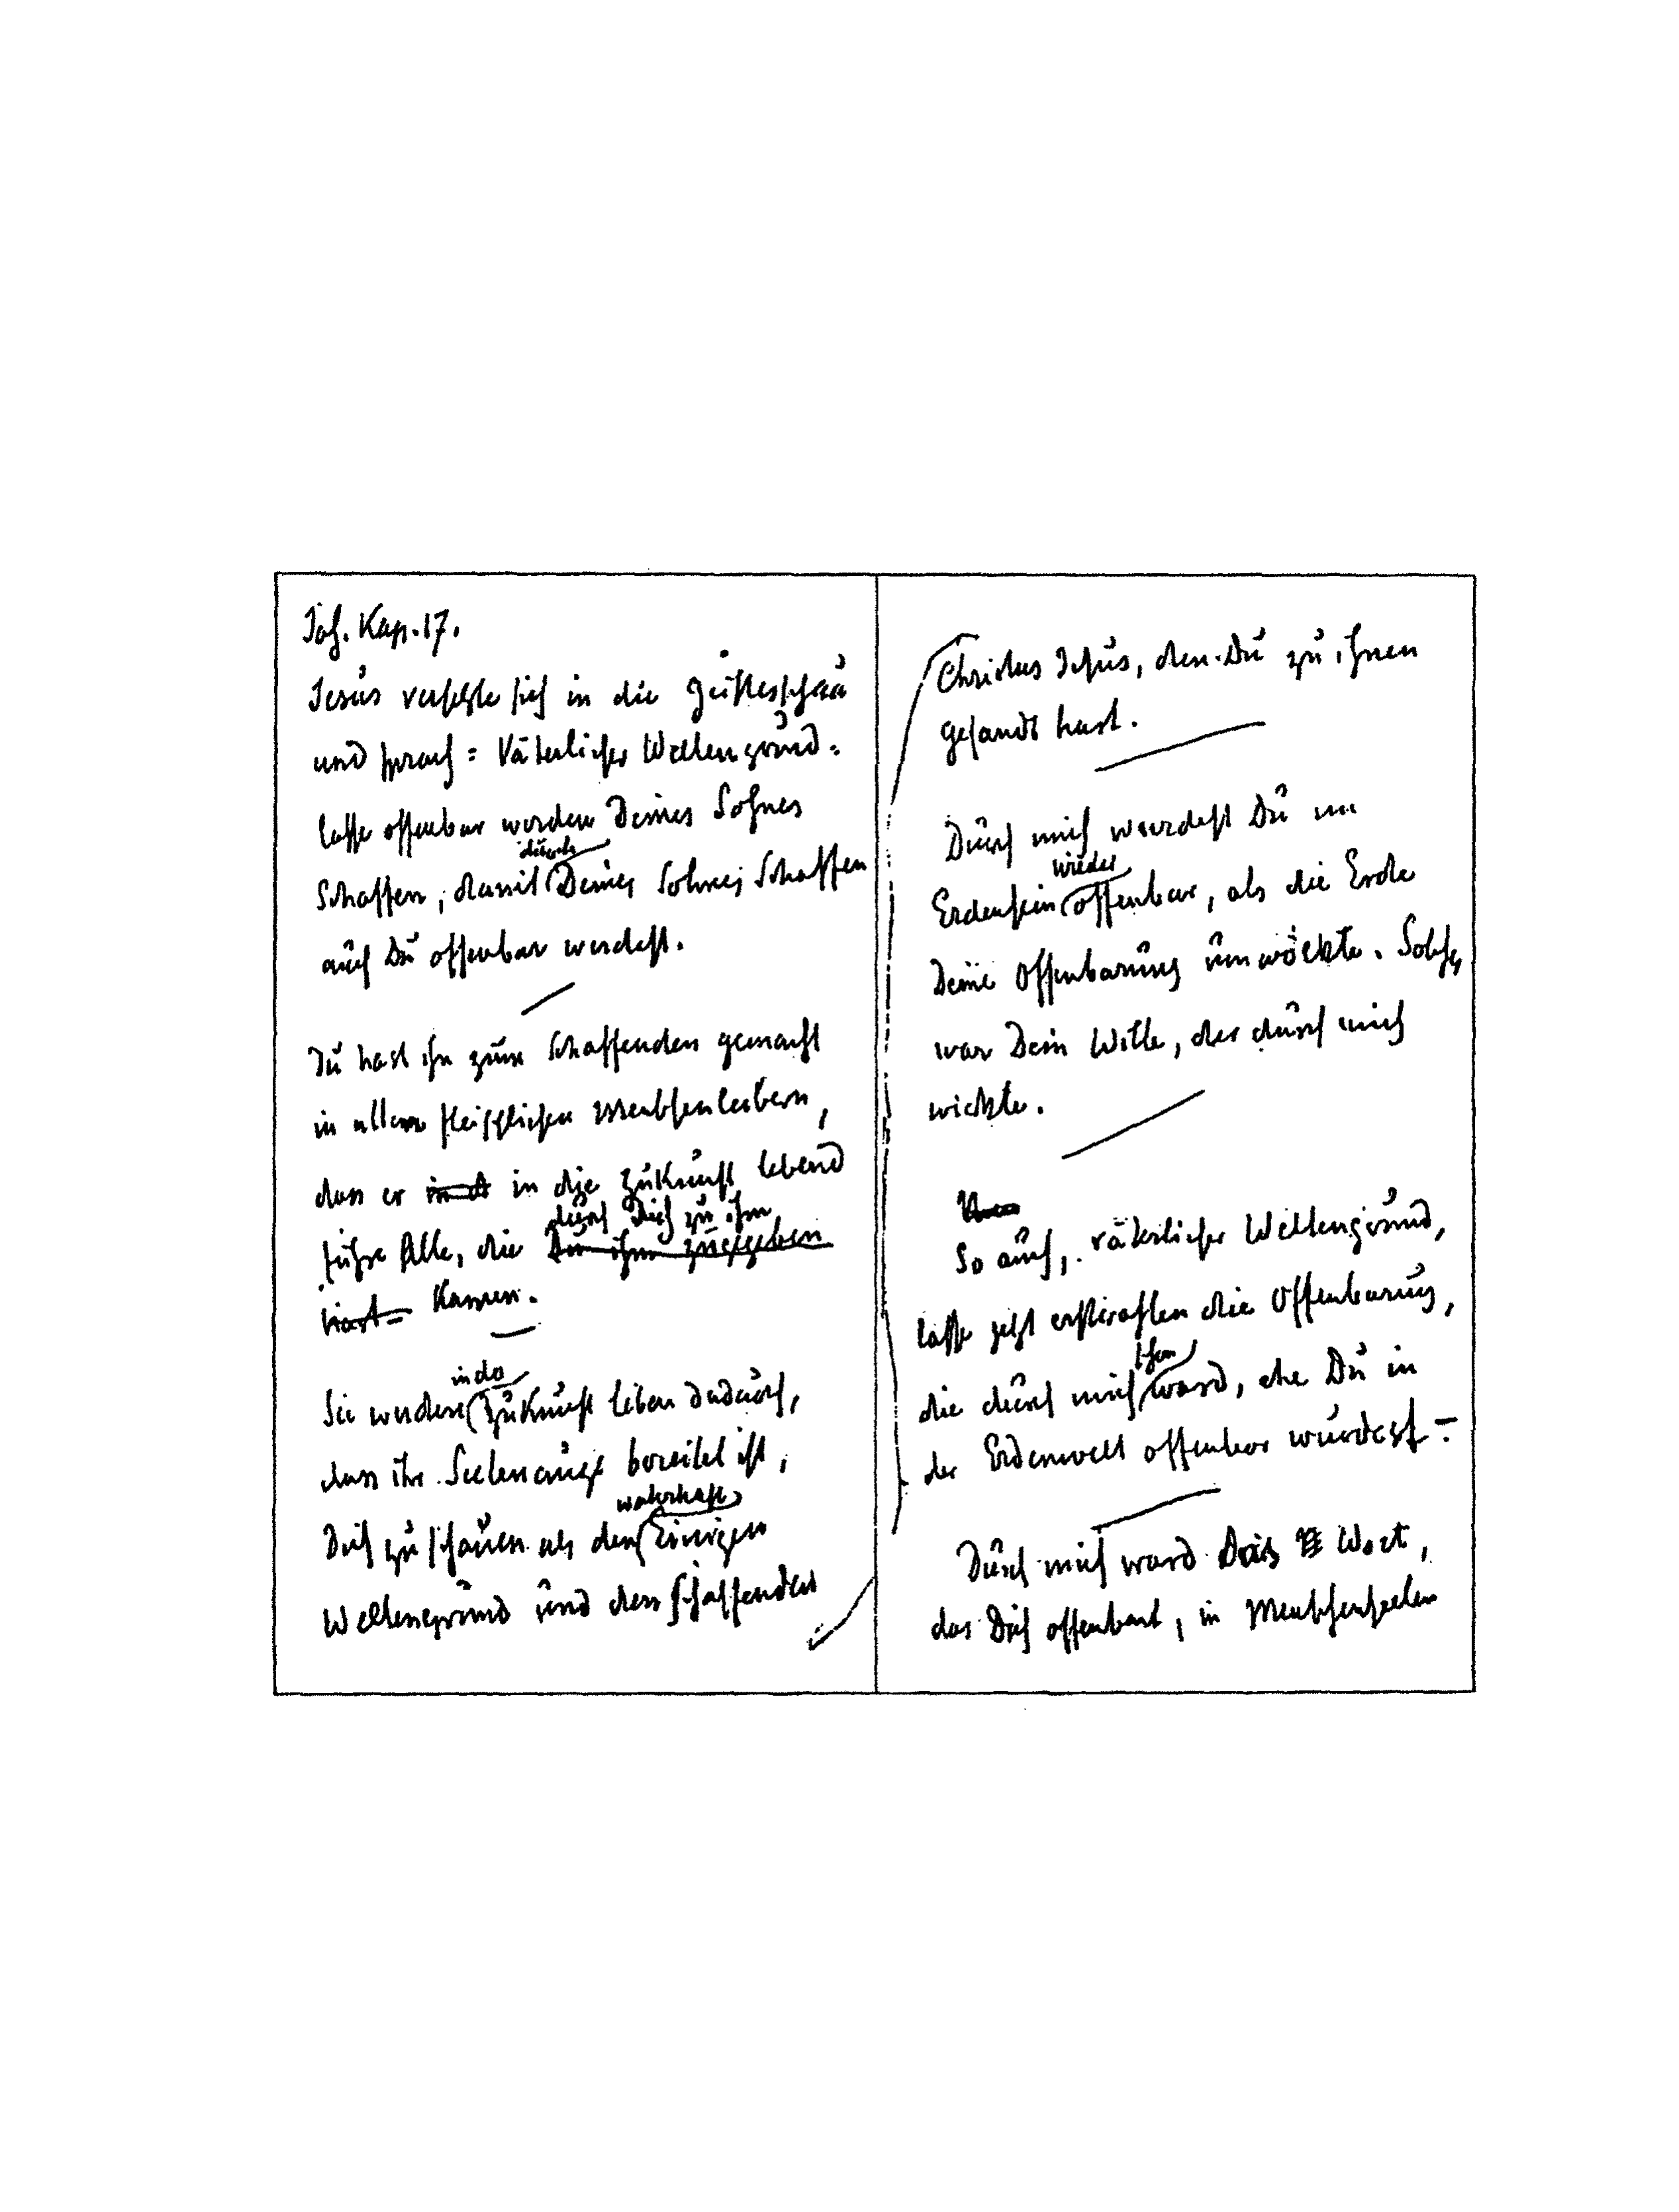 Joh. Kap. 17.
Jesus versetzte sich in die Geistesschau
und sprach: Väterlicher Weltengrund:
lasse offenbar werden Deines Sohnes
durch
Schaffen, damit Deines Sohnes Schaffen
auch Du offenbar werdest.
Du hast ihn zum Schaffenden gemacht
in allen fleischlichen Menschenleibern,
dass er in d in die Zukunft lebend
durch Dich zu ihm
führe Alle, die Du ihm zugegeben
hast kamen.
in der
Sie werden Zukunft leben dadurch,
dass ihr Seelenauge bereitet ist,
wahrhaft
Dich zu schauen als den Einigen
Weltengrund und den schaffenden
Christus Jesus, den Du zu ihnen
gesandt hast.
Durch mich wardest Du im
wieder
Erdensein offenbar, als die Erde
Deine Offenbarung umwölkte. Solches
war Dein Wille, der durch mich
wirkte.
So auch, väterlicher Weltengrund,
lasse jetzt erstrahlen die Offenbarung,
schon
die durch mich ward, ehe Du in
der Erdenwelt offenbar wurdest:
Durch mich ward Wort,
das Dich offenbart, in Menschenseelen